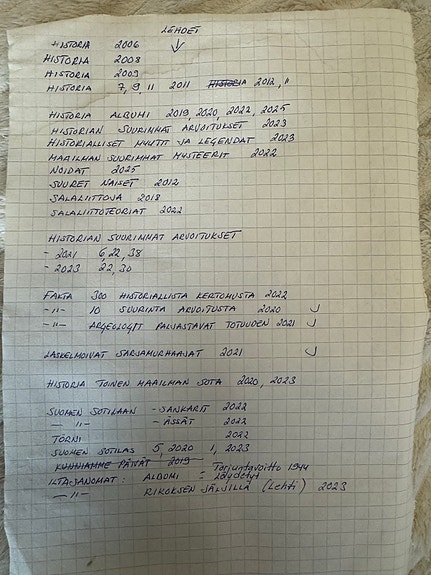 LEHDET
HISTORIA 2006 ↓
HISTORIA 2008
HISTORIA 2009
HISTORIA 7, 9, 11 2011 HISTORIA 2012, "
HISTORIA ALBUMI 2019, 2020, 2022, 2025
HISTORIAN SUURIMMAT ARVOITUKSET 2023
HISTORIALLISET MYYTIT JA LEGENDAT 2023
MAAILMAN SUURIMMAT MYSTEERIT 2022
NOIDAT 2025
SUURET NAISET 2012
SALALIITTOJA 2018
SALALIITTOTEORIAT 2022
HISTORIAN SUURIMMAT ARVOITUKSET
- 2021 6, 22, 38
- 2023 22, 30
FAKTA 300 HISTORIALLISTA KERTOMUSTA 2022
-"- 10 SUURINTA ARVOITUSTA 2020 ✓
-"- ARGEOLOGIT PALJASTAVAT TOTUUDEN 2021 ✓
LASKELMOIVAT SARJAMURHAAJAT 2021 ✓
HISTORIA TOINEN MAAILMAN SOTA 2020, 2023
SUOMEN SOTILAAN - SANKARIT 2022
-"- - ÄSSÄT 2022
TORNI 2022
SUOMEN SOTILAS 5, 2020 1, 2023
KUNNIAMME PÄIVÄT 2019
ILTASANOMAT: ALBUMI = Torjuntavoitto 1944
Löydetyt
-"- RIKOKSEN JÄLJILLÄ (Lehti) 2023